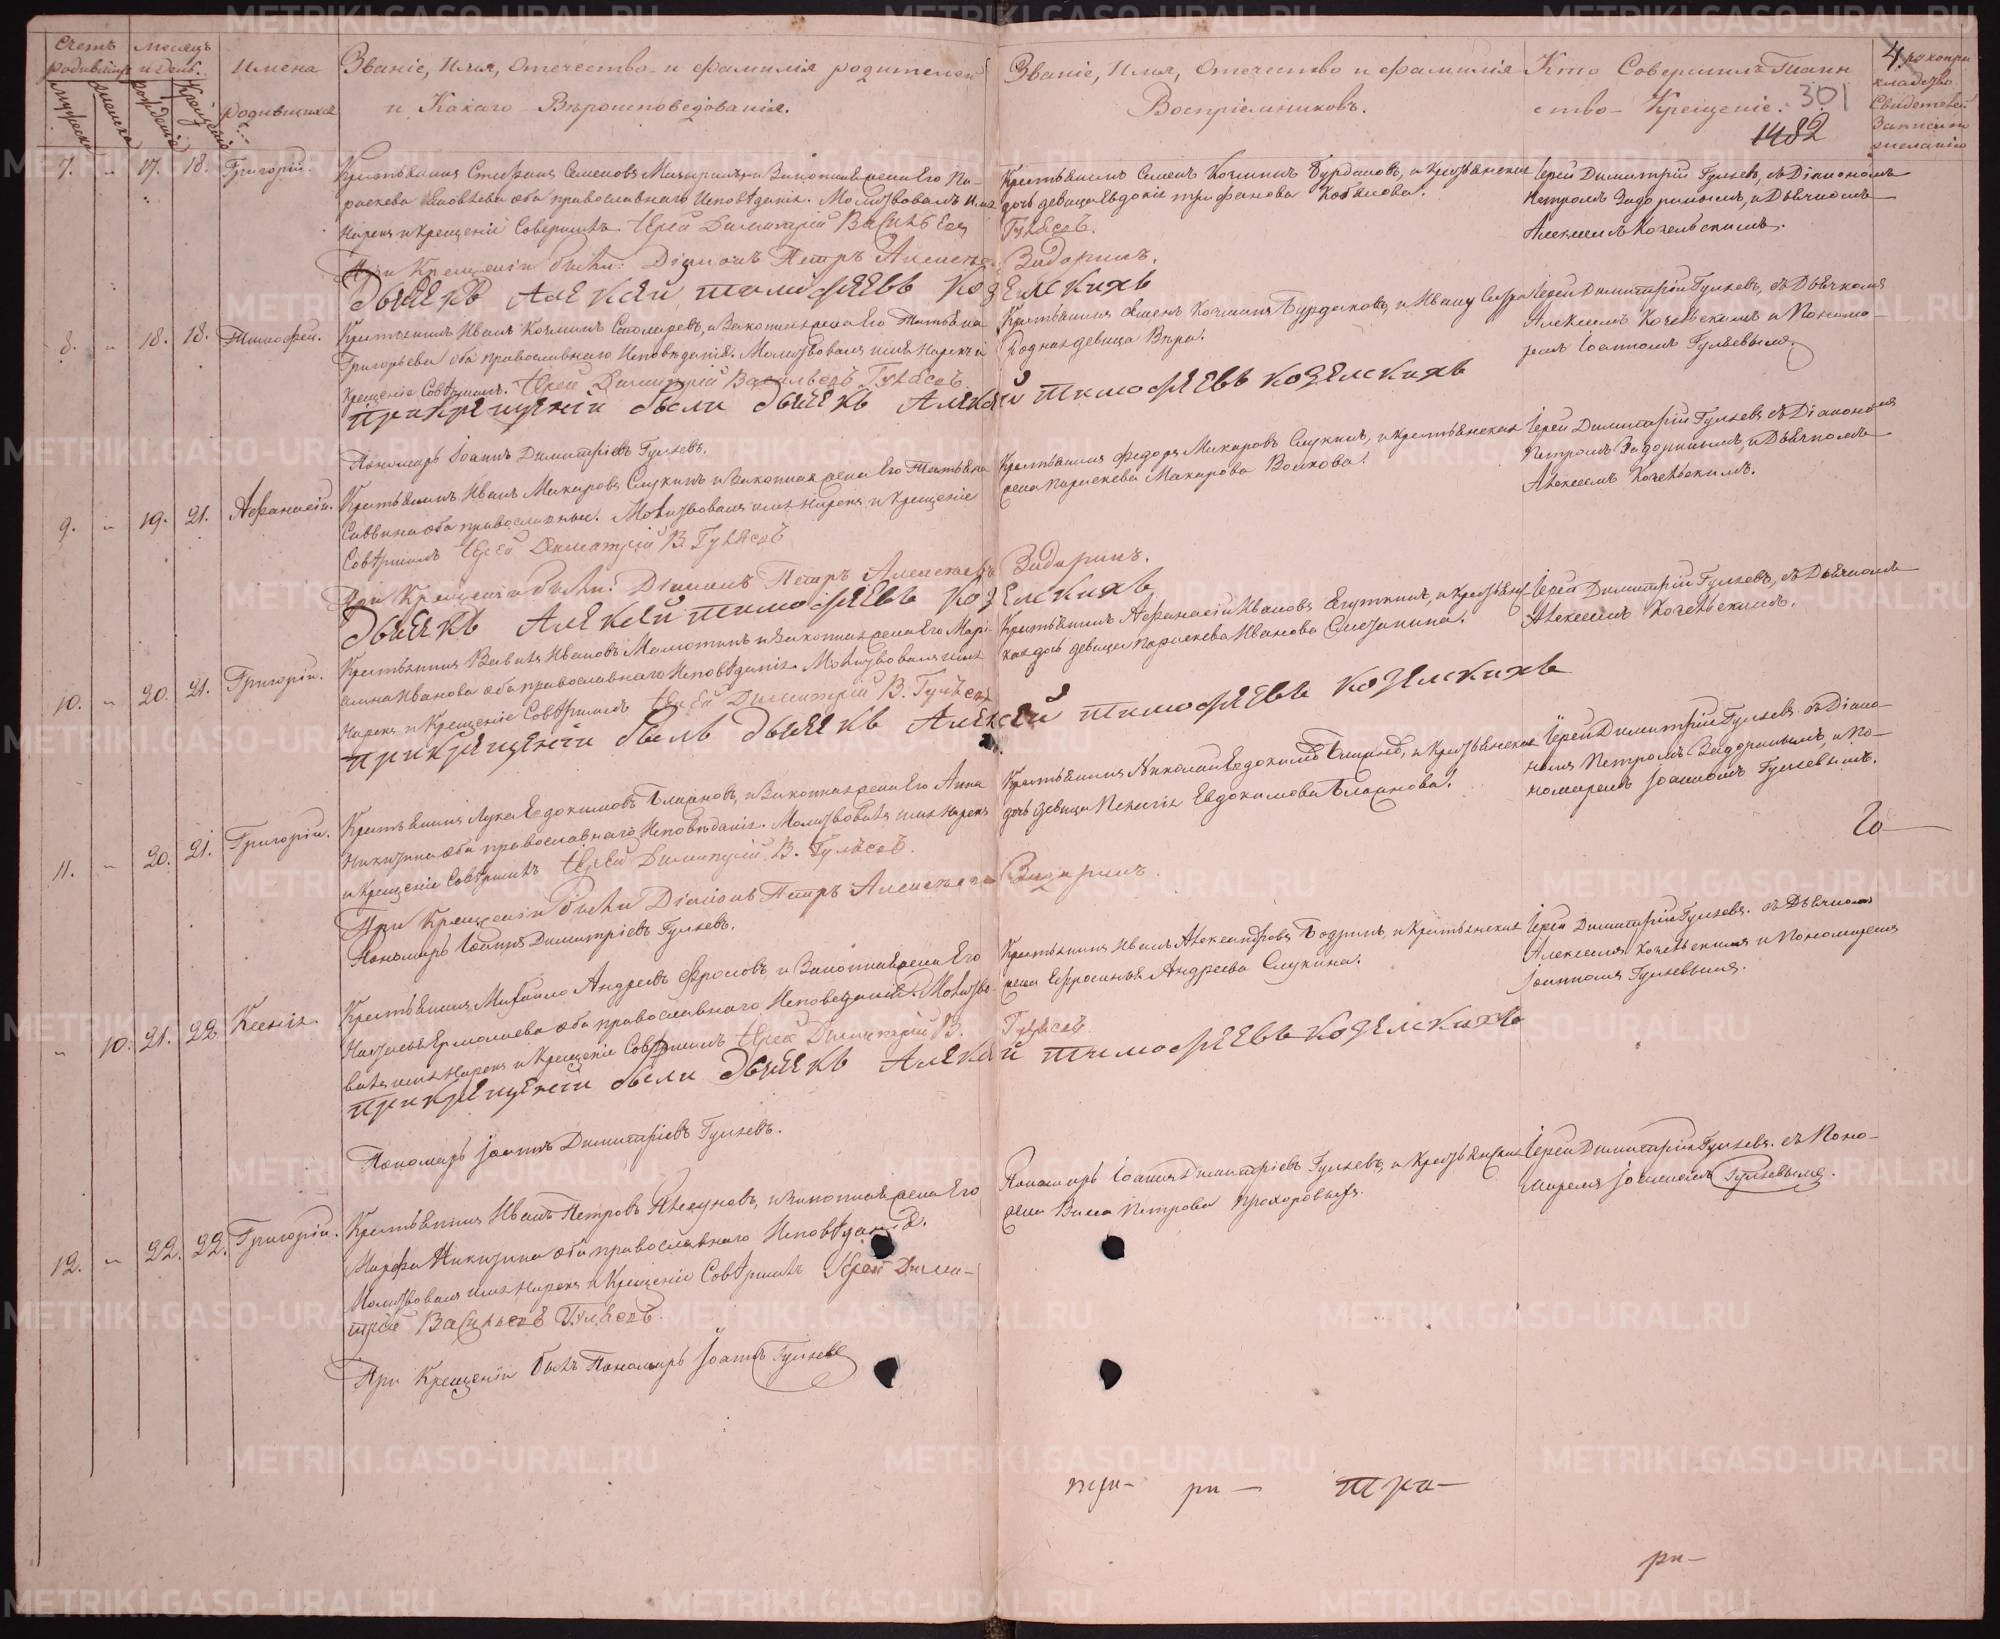 Счетъ родившихся
мѣсяцъ и день.
Имена родившихся.
Званіе, Имя, Отечество и фамилія родителей
и Какаго Вѣроисповѣданія.
Званіе, Имя, Отечество и фамилія
Воспріемниковъ.
Кто Совершилъ Таин
ство Крещенія.
4.
301
1482
7. " 17. 18. Григорій.
Крестьянинъ Стефанъ Семеновъ и Законная жена Его Па-
раскева оба православнаго Исповѣданія. Молитвовалъ Имя
Нарекъ и Крещеніе Совершилъ Іерей Димитрій Васильевъ
Гуляевъ.
При Крещеніи были: Діаконъ Петръ Алексѣевъ Задоринъ.
Дьячекъ Алексей тимофеевъ козелскихъ
Крестьянинъ Семенъ Козминъ Бурдаковъ, и Крестьянская
дочь девица Евдокія трифанова
Іерей Димитрій Гуляевъ, съ Діакономъ
Петромъ Задоринымъ, и Дьячкомъ
Алексеемъ Козельскимъ.
8. " 18. 18. Тимофей.
Крестьянинъ Иванъ Козминъ и Законная жена Его Татьяна
Григорьева оба православнаго Исповѣданія. Молитвовалъ имя Нарекъ и
Крещеніе Совершилъ Іерей Димитрій Васильевъ Гуляевъ
прикрещеніи были дьячекъ Алексей тимофеевъ козелскихъ
Пономарь Іоаннъ Димитріевъ Гуляевъ.
Крестьянинъ Семенъ Козминъ Бурдаковъ, и Ивану Сестра
Родная девица Вера.
Іерей Димитрій Гуляевъ, съ Дьячкомъ
Алексеемъ Козельскимъ и Понома-
ремъ Іоанномъ Гуляевымъ.
9. " 19. 21. Афанасій.
Крестьянинъ Иванъ Макаровъ Слукинъ и Законная жена Его Татьяна
Саввина оба православные. Молитвовалъ имя Нарекъ и Крещеніе
Совершилъ Іерей Димитрій В. Гуляевъ
При Крещеніи были: Діаконъ Петръ Алексѣевъ Задоринъ.
Дьячекъ Алексей тимофеевъ козелскихъ
Крестьянинъ Федоръ Макаровъ Слукинъ, и Крестьянская
жена Параскева Макарова Волкова.
Іерей Димитрій Гуляевъ съ Діакономъ
Петромъ Задоринымъ, и Дьячкомъ
Алексеемъ Козельскимъ.
10. " 20. 21. Григорій.
Крестьянинъ Вавила Ивановъ и Законная жена Его Марі-
амна Иванова оба православнаго Исповѣданія. Молитвовалъ имя
Нарекъ и Крещеніе Совершилъ Іерей Димитрій В. Гуляевъ
прикрещеніи былъ дьячекъ Алексей тимофеевъ козелскихъ
Крестьянинъ Афанасій Ивановъ и Крестьянс-
кая дочь девица Параскева Иванова
Іерей Димитрій Гуляевъ, съ Дьячкомъ
Алексеемъ Козельскимъ.
11. " 20. 21. Григорій.
Крестьянинъ Лука Евдокимовъ и Законная жена Его Анна
Никитина оба православнаго Исповѣданія. Молитвовалъ имя Нарекъ
и Крещеніе Совершилъ Іерей Димитрій В. Гуляевъ.
При Крещеніи были Діаконъ Петръ Алексѣевъ Задоринъ.
Пономарь Іоаннъ Димитріевъ Гуляевъ.
Крестьянинъ Николай Евдокимовъ и Крестьянская
дочь девица Пелагія Евдокимова
Іерей Димитрій Гуляевъ съ Діако-
номъ Петромъ Задоринымъ, и По-
номаремъ Іоанномъ Гуляевымъ.
" 10. 21. 22. Ксенія.
Крестьянинъ Михаило Андреевъ Фроловъ, и Законная жена Его
Наталья Ермолаева оба православнаго Исповеданія. Молитво-
валъ имя Нарекъ и Крещеніе Совершилъ Іерей Димитрій В. Гуляевъ
прикрещеніи были дьячекъ Алексей тимофеевъ козелскихъ
Пономарь Іоаннъ Димитріевъ Гуляевъ.
Крестьянинъ Иванъ Александровъ Бодринъ, и Крестьянская
жена Ефросинья Андреева Слукина.
Іерей Димитрій Гуляевъ. съ Дьячкомъ
Алексеемъ Козельскимъ и Пономаремъ
Іоанномъ Гуляевымъ.
12. " 22. 22. Григорій.
Крестьянинъ Иванъ Петровъ и Законная жена Его
Марфа Никитина оба православнаго Исповѣданія.
Молитвовалъ имя Нарекъ и Крещеніе Совершилъ Іерей Дими-
трій Васильевъ Гуляевъ
При Крещеніи былъ Пономарь Іоаннъ Гуляевъ
Пономарь Іоаннъ Димитріевъ Гуляевъ, и Крестьянская
жена Васса Петрова Прохоровыхъ.
Іерей Димитрій Гуляевъ. съ Поно-
маремъ Іоанномъ Гуляевымъ.
при- ри- при-
ри-
METRIKI.GASO-URAL.RU